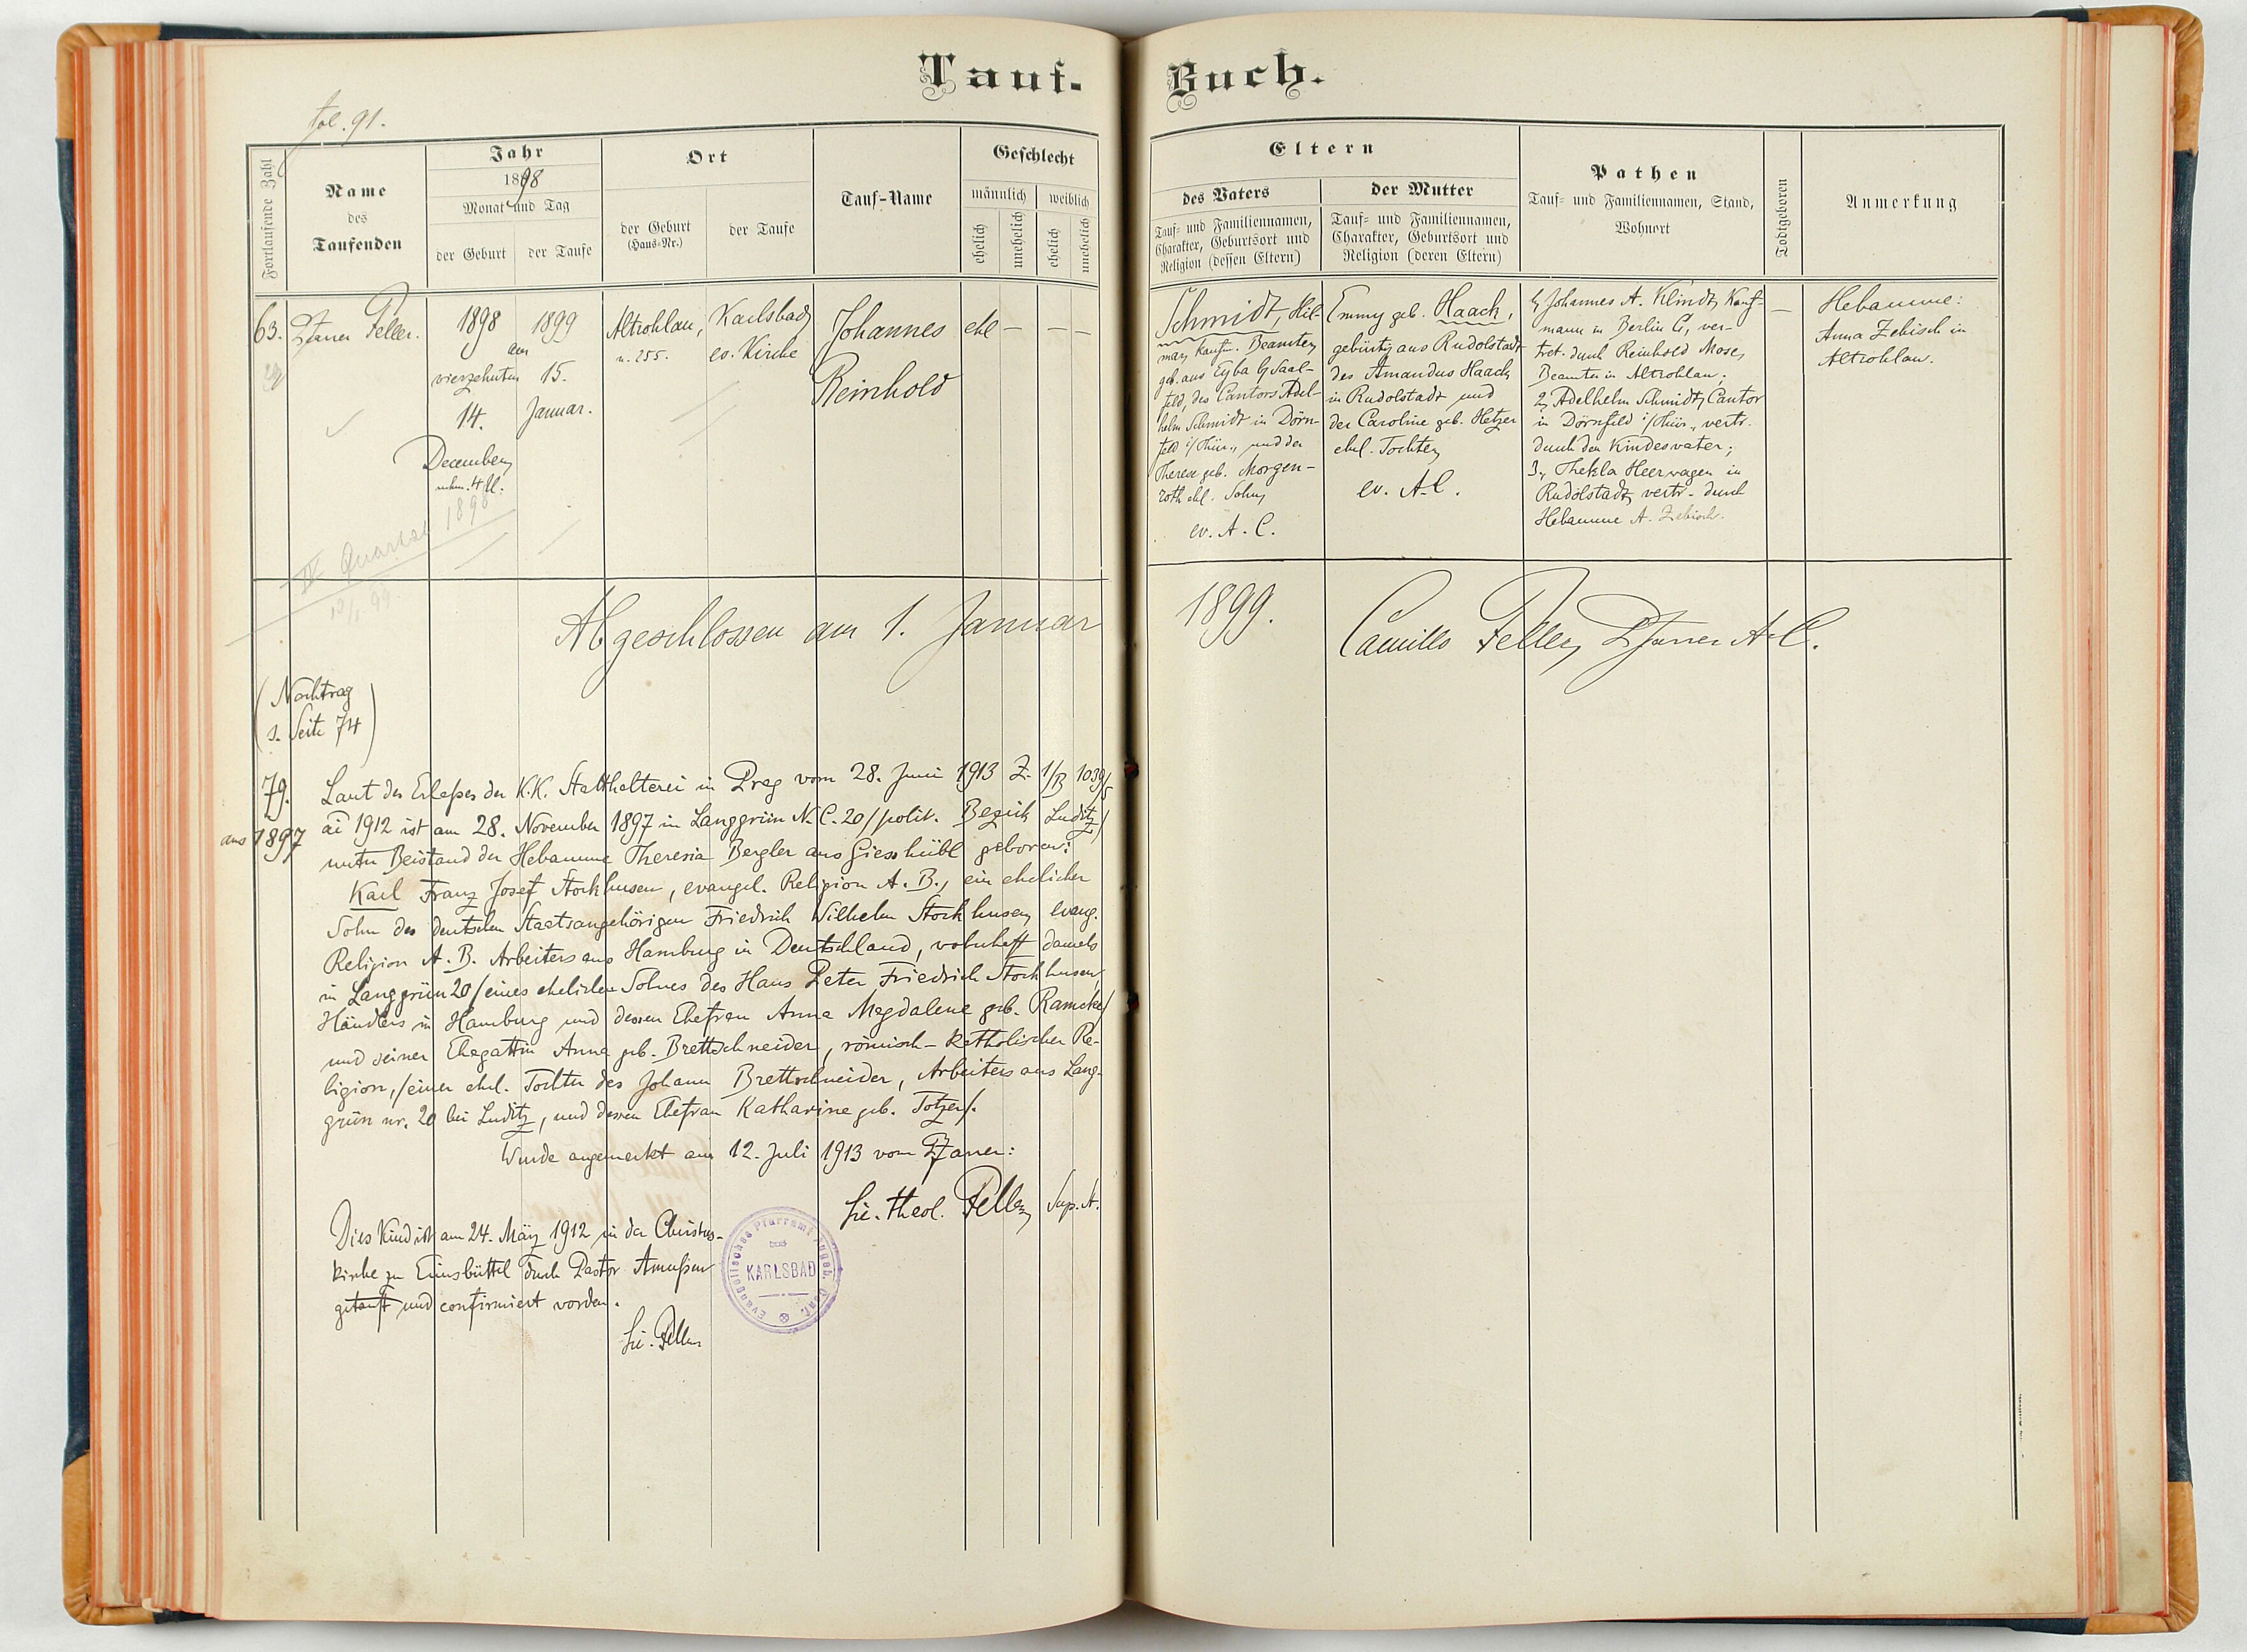 Tauf-
Buch.
fol. 91.
Fortlaufende Zahl
Name
des
Taufenden
Jahr
1898
Monat und Tag
der Geburt
der Taufe
Ort
der Geburt
(Haus-Nr.)
der Taufe
Tauf-Name
Geschlecht
männlich
weiblich
ehelich
unehelich
ehelich
unehelich
Eltern
des Vaters
Tauf- und Familiennamen,
Charakter, Geburtsort und
Religion (dessen Eltern)
der Mutter
Tauf- und Familiennamen,
Charakter, Geburtsort und
Religion (deren Eltern)
Pathen
Tauf- und Familiennamen, Stand,
Wohnort
Todtgeboren
Anmerkung
63.
Pfarrer Feller.
1898
am
vierzehnten
14.
December
nchm. 4 U.
1899
15.
Januar.
Altrohlau,
n. 255.
Karlsbad,
ev. Kirche
Johannes
Reinhold
ehl
—
— —
Schmidt, Hil-
mar, Kaufm. Beamter,
geb. aus Eyba b/ Saal-
feld, des Cantors Adel-
helm Schmidt in Dörn-
feld i/Thür., und der
Therese geb. Morgen-
roth ehl. Sohn,
ev. A. C.
Emmy geb. Haack,
gebürtig aus Rudolstadt
des Amandus Haack
in Rudolstadt und
der Caroline geb. Hetzer
ehel. Tochter,
ev. A. C.
1, Johannes A. Klindt, Kauf-
mann in Berlin C, ver-
tret. durch Reinhold Mose,
Beamter in Altrohlau;
2, Adelhelm Schmidt, Cantor
in Dörnfeld i/Thür., vertr.
durch den Kindesvater;
3, Thekla Heerwagen in
Rudolstadt, vertr. durch
Hebamme A. Zebisch.
—
Hebamme:
Anna Zebisch in
Altrohlau.
IV. Quartal 1898
Abgeschlossen am 1. Januar
1899.
Camillo Feller, Pfarrer A. C.
(Nachtrag
s. Seite 74)
79.
aus 1897
Laut des Erlasses der K.K. Statthalterei in Prag vom 28. Juni 1913 Z. 1/B 1039/5
ai 1912 ist am 28. November 1897 in Langgrün N. C. 20 /polit. Bezirk Luditz/
unter Beistand der Hebamme Theresia Bergler aus Giesshübl geboren:
Karl Franz Josef Stockhusen, evangel. Religion A. B., ein ehelicher
Sohn des deutschen Staatsangehörigen Friedrich Wilhelm Stockhusen, evang.
Religion A. B. Arbeiters aus Hamburg in Deutschland, wohnhaft damals
in Langgrün 20 /eines ehelichen Sohnes des Hans Peter Friedrich Stockhusen,
Händlers in Hamburg und dessen Ehefrau Anna Magdalene geb. Ramcke/
und seiner Ehegattin Anna geb. Brettschneider, römisch-katholischer Re-
ligion, /einer ehel. Tochter des Johann Brettschneider, Arbeiters aus Lang-
grün nr. 20 bei Luditz, und dessen Ehefrau Katharine geb. Totzer/.
Wurde angemerkt am 12. Juli 1913 vom Pfarrer:
Lic. theol. Feller, Sup. St.
Dies Kind ist am 24. März 1912 in der Christus-
kirche zu Eimsbüttel durch Pastor Amussen
getauft und confirmiert worden.
Lic. Feller
Evangelisches Pfarramt Augsb. Conf.
KARLSBAD